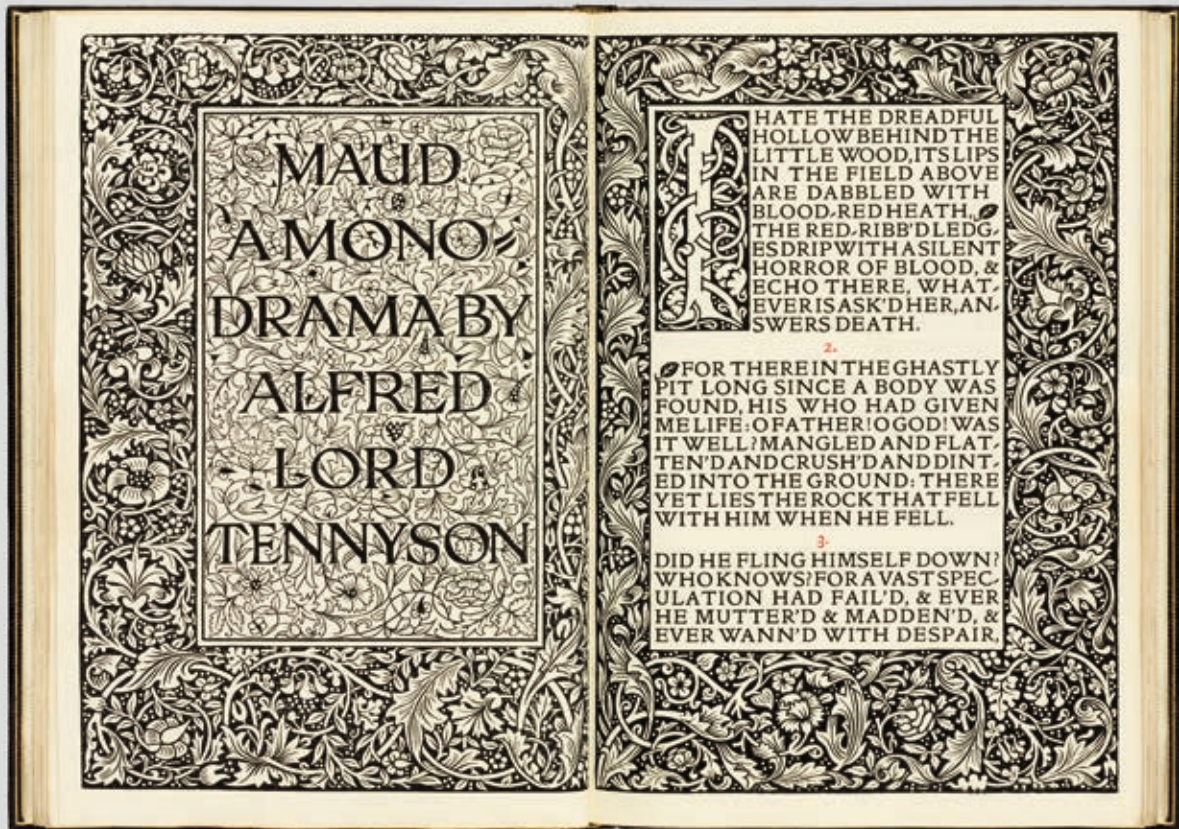 MAUD
A MONO-
DRAMA BY
ALFRED
LORD
TENNYSON
I HATE THE DREADFUL
HOLLOW BEHIND THE
LITTLE WOOD, ITS LIPS
IN THE FIELD ABOVE
ARE DABBLED WITH
BLOOD-RED HEATH,
THE RED-RIBB'D LEDG-
ES DRIP WITH A SILENT
HORROR OF BLOOD, &
ECHO THERE, WHAT-
EVER IS ASK'D HER, AN-
SWERS DEATH.
2.
FOR THERE IN THE GHASTLY
PIT LONG SINCE A BODY WAS
FOUND, HIS WHO HAD GIVEN
ME LIFE: O FATHER! O GOD! WAS
IT WELL? MANGLED AND FLAT-
TEN'D AND CRUSH'D AND DINT-
ED INTO THE GROUND: THERE
YET LIES THE ROCK THAT FELL
WITH HIM WHEN HE FELL.
3.
DID HE FLING HIMSELF DOWN?
WHO KNOWS? FOR A VAST SPEC-
ULATION HAD FAIL'D, & EVER
HE MUTTER'D & MADDEN'D, &
EVER WANN'D WITH DESPAIR,